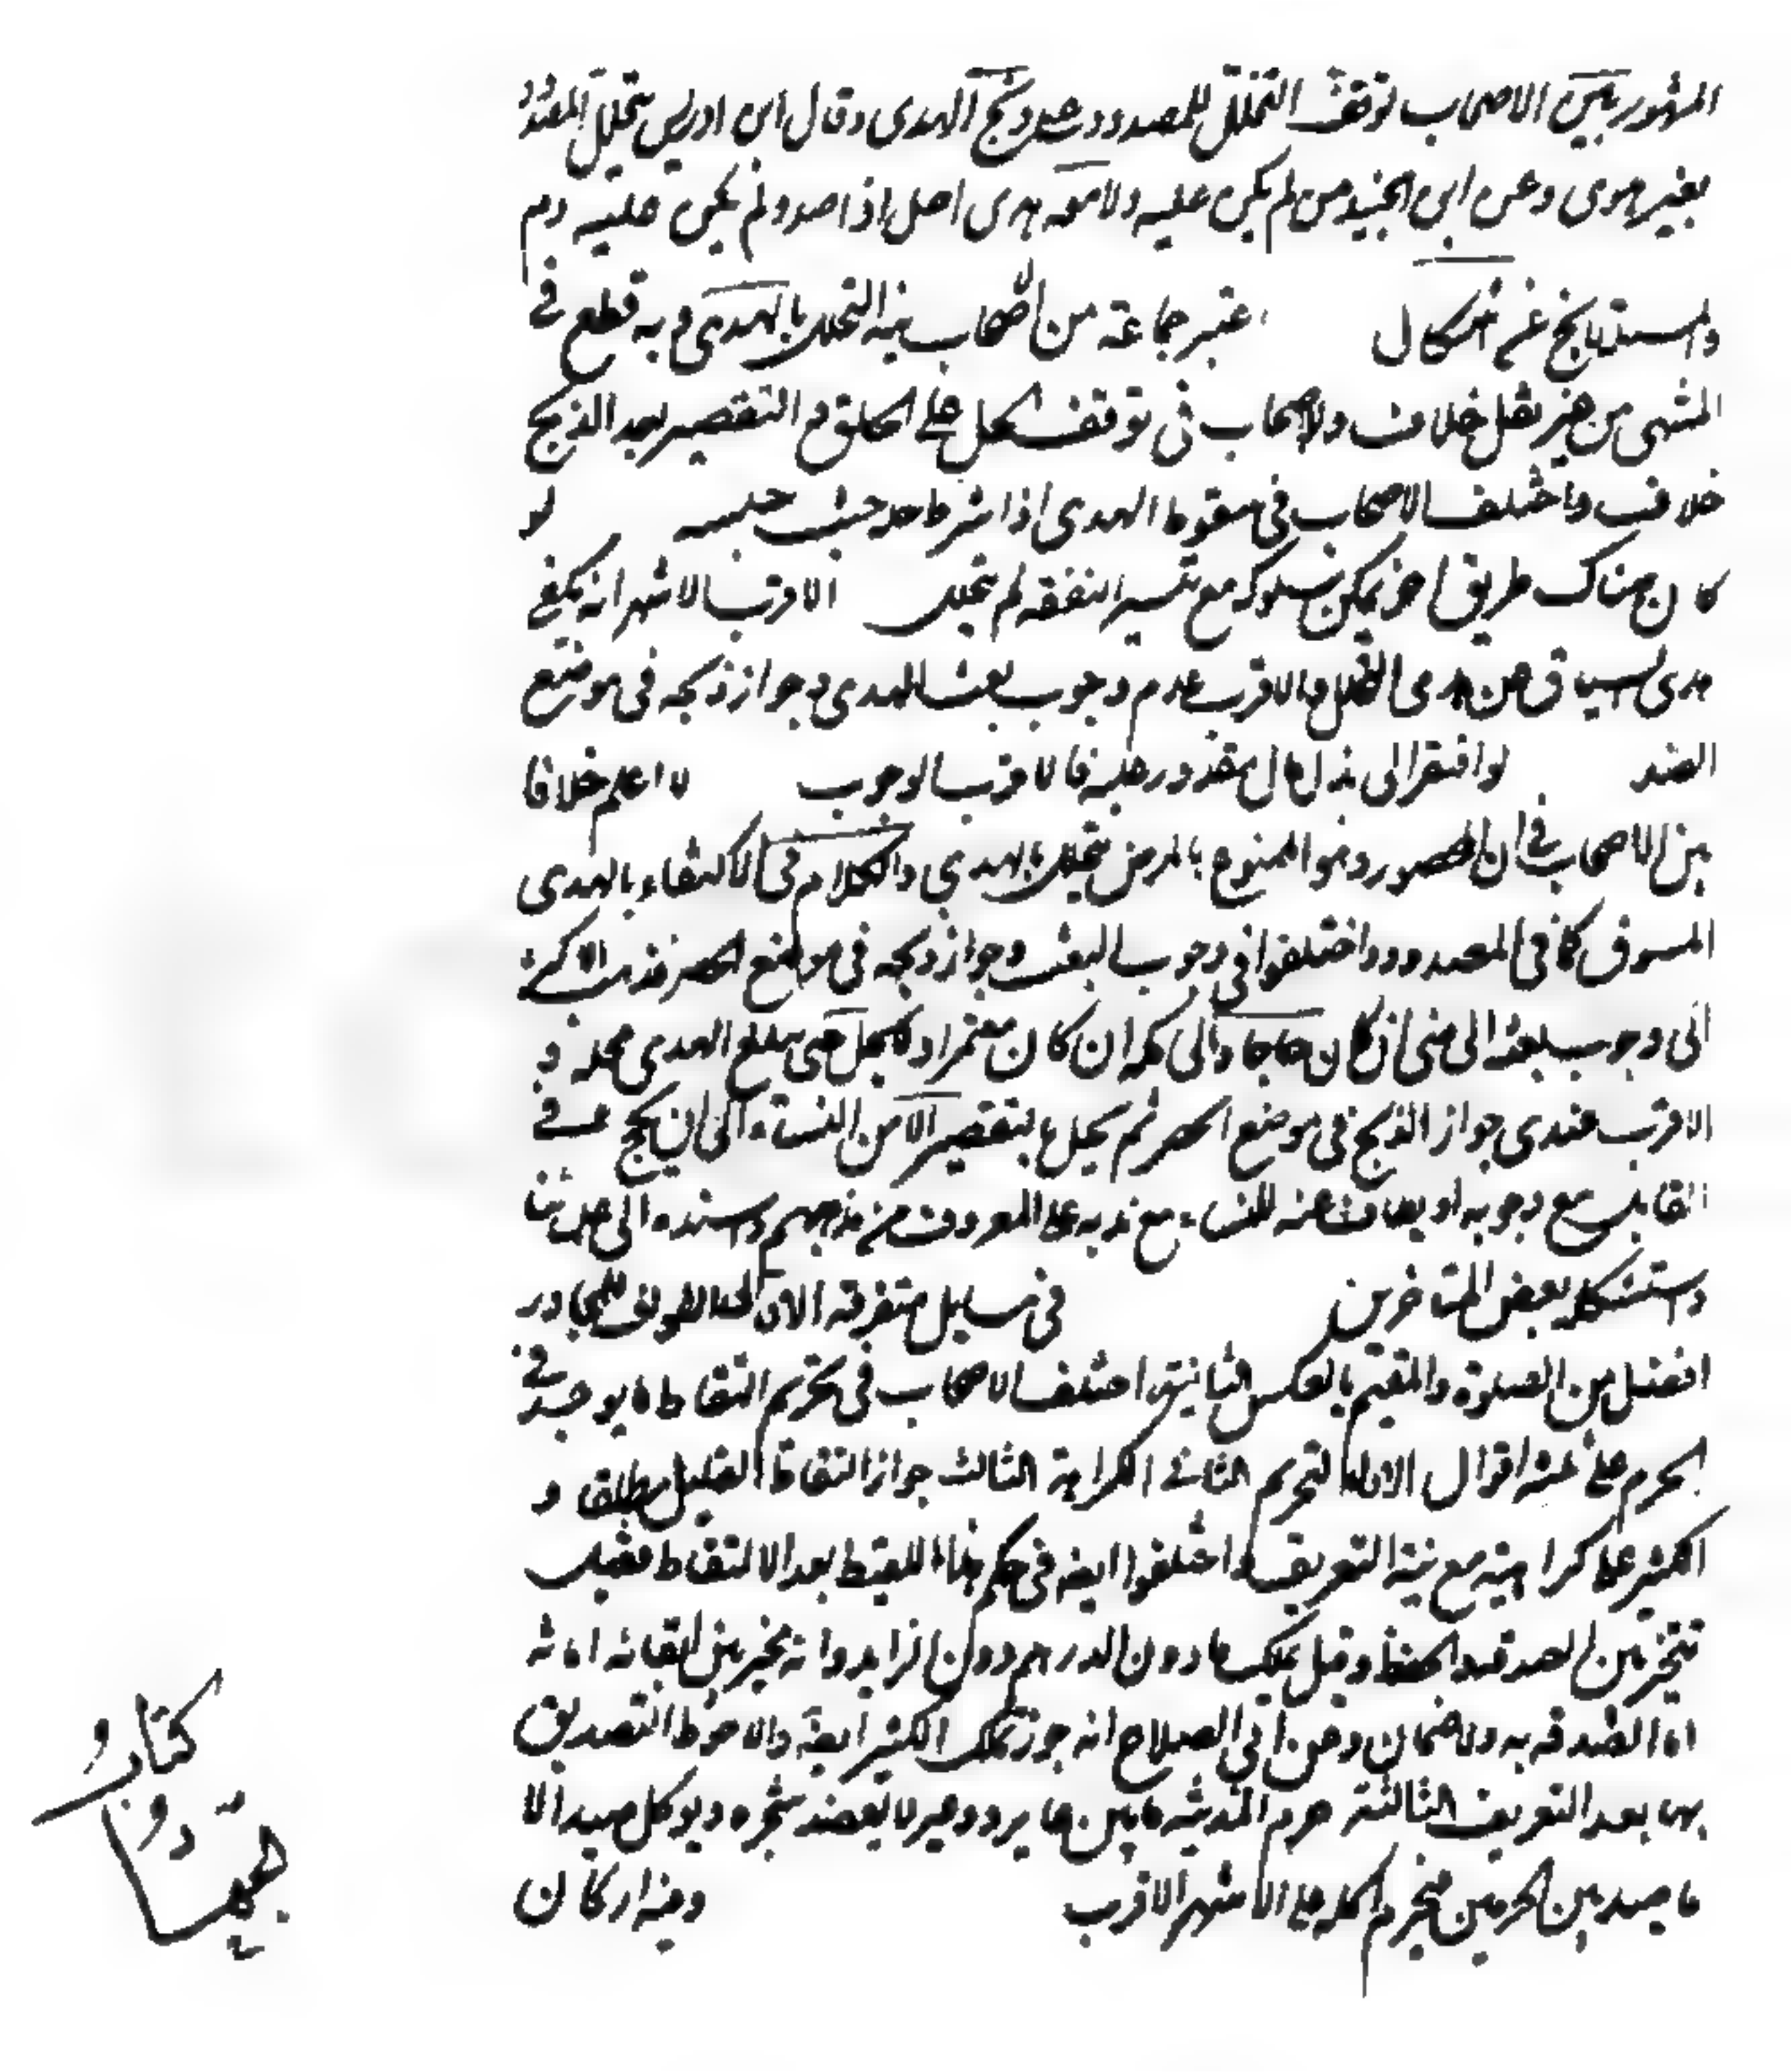 المشهور بين الاصحاب توقف التحلل للمصدود على ذبح الهدى وقال ابن ادريس يتحلل المصدود
بغير هدى وعن ابن الجنيد من لم يكن عليه ولا معه هدى احل اذا صد ولم يكن عليه دم
والمستند بالجميع غير اشكال اعتبر جماعة من الاصحاب نية التحلل بالهدى وبه قطع في
المنتهى من غير نقل خلاف وللاصحاب في توقف الحل على الحلق و التقصير بعد الذبح
خلاف واختلف الاصحاب في سقوط الهدى اذا شرط حله حيث حبسه لو
كان هناك طريق اخر يمكن سلوكه مع تيسر النفقة لم يتحلل الاقرب الاشهر انه يكفي
هدى السياق عن هدى التحلل والاقرب عدم وجوب بعث الهدى وجواز ذبحه في موضع
الصد لو افتقر الى بذل مال مقدور عليه فالاقرب الوجوب لا اعلم خلافا
بين الاصحاب في ان المحصور وهو الممنوع بالمرض يتحلل بالهدى والكلام في الاكتفاء بالهدى
المسوق كما في المصدود واختلفوا في وجوب البعث وجواز ذبحه في موضع الحصر فذهب الاكثر
الى وجوب بعثه الى منى ان كان حاجا والى مكه ان كان معتمرا ولا يحل حتى يبلغ الهدى محله و
الاقرب عندى جواز الذبح في موضع الحصر ثم يحل بالتقصير الا من النساء الى ان يحج في
القابل مع وجوبه او يطاف عنه للنساء مع ندبه على المعروف من مذهبهم واسنده الى علمائنا
واستشكله بعض المتاخرين في مسايل متفرقه الاولى الطواف للمجاور
افضل من الصلوة والمقيم بالعكس الثانية اختلف الاصحاب في تحريم التقاط ما يوجد في
الحرم على ثلثة اقوال الاول التحريم الثاني الكراهة الثالث جواز التقاط القليل مطلقا و
الكثير على كراهية مع نية التعريف واختلفوا ايضا في حكم هذا اللقيط بعد الالتقاط فقيل
يتخير بين الصدقه والحفظ وقيل يملك ما دون الدرهم دون الزايد وانه يخير بين ابقائه امانه
اما الصدقه به ولا ضمان وعن ابي الصلاح انه جوز تملك الكثير ايضا والاحوط التصديق
بها بعد التعريف الثالثة حرم المدينة ما بين عاير ووعير لا يعضد شجره ويوكل صيده الا
ما صيد بين الحرمين فيحرم اكله على الاشهر الاقرب وفيه اركان
كتاب
الجهاد و